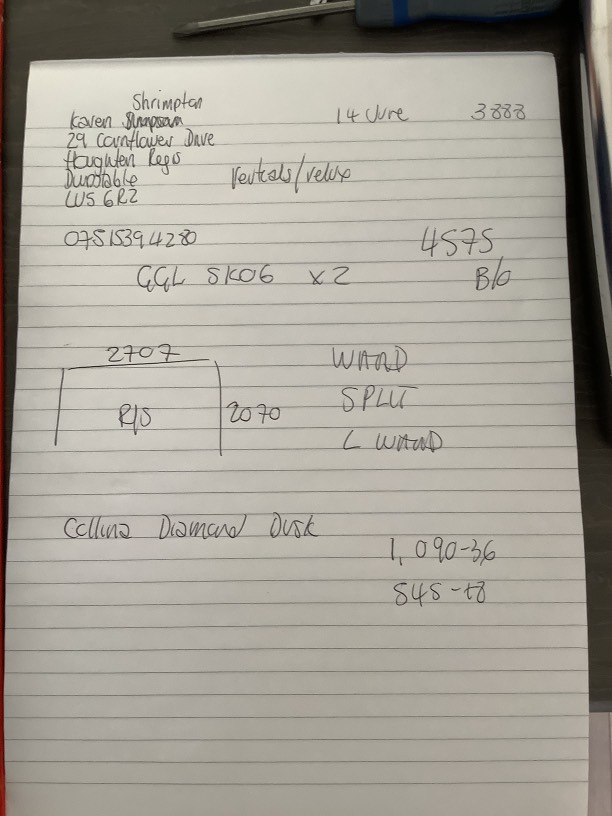 Shrimpton
Karen Simpson 14 June 3888
29 Cornflower Drive
Houghton Regis
Dunstable Verticals/velux
LU5 6RZ
07515394280 4575
GGL SK06 x2 B/o
2707 WAND
R/S 2070 SPLIT
L WAND
Collina Diamond Dusk
1,090-36
545-18